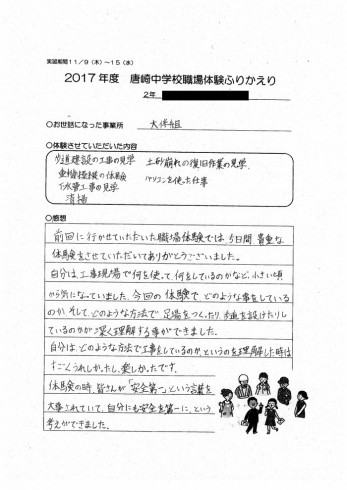 実習期間11/9(木)~15(水)
2017年度 唐崎中学校職場体験ふりかえり
2年
○お世話になった事業所 大伴組
○体験させていただいた内容
歩道建設の工事の見学 土砂崩れの復旧作業の見学
重機操縦の体験 パソコンを使った仕事
下水管工事の見学
清掃
○感想
前回に行かせていただいた職場体験では、5日間、貴重な
体験をさせていただいてありがとうございました。
自分は、工事現場で何を使って、何をしているのかなど、小さい頃
から気になっていました。今回の体験で、どのような事をしている
のか、そして、どのような方法で足場をつくったり、歩道を設けたりし
ているのかが深く理解する事ができました。
自分は、どのような方法で工事をしているのか、というのを理解した時は
すごくうれしかったし、楽しかったです。
体験の時、皆さんが「安全第一」という言葉を
大事されていて、自分にも安全を第一に、という
考えができました。